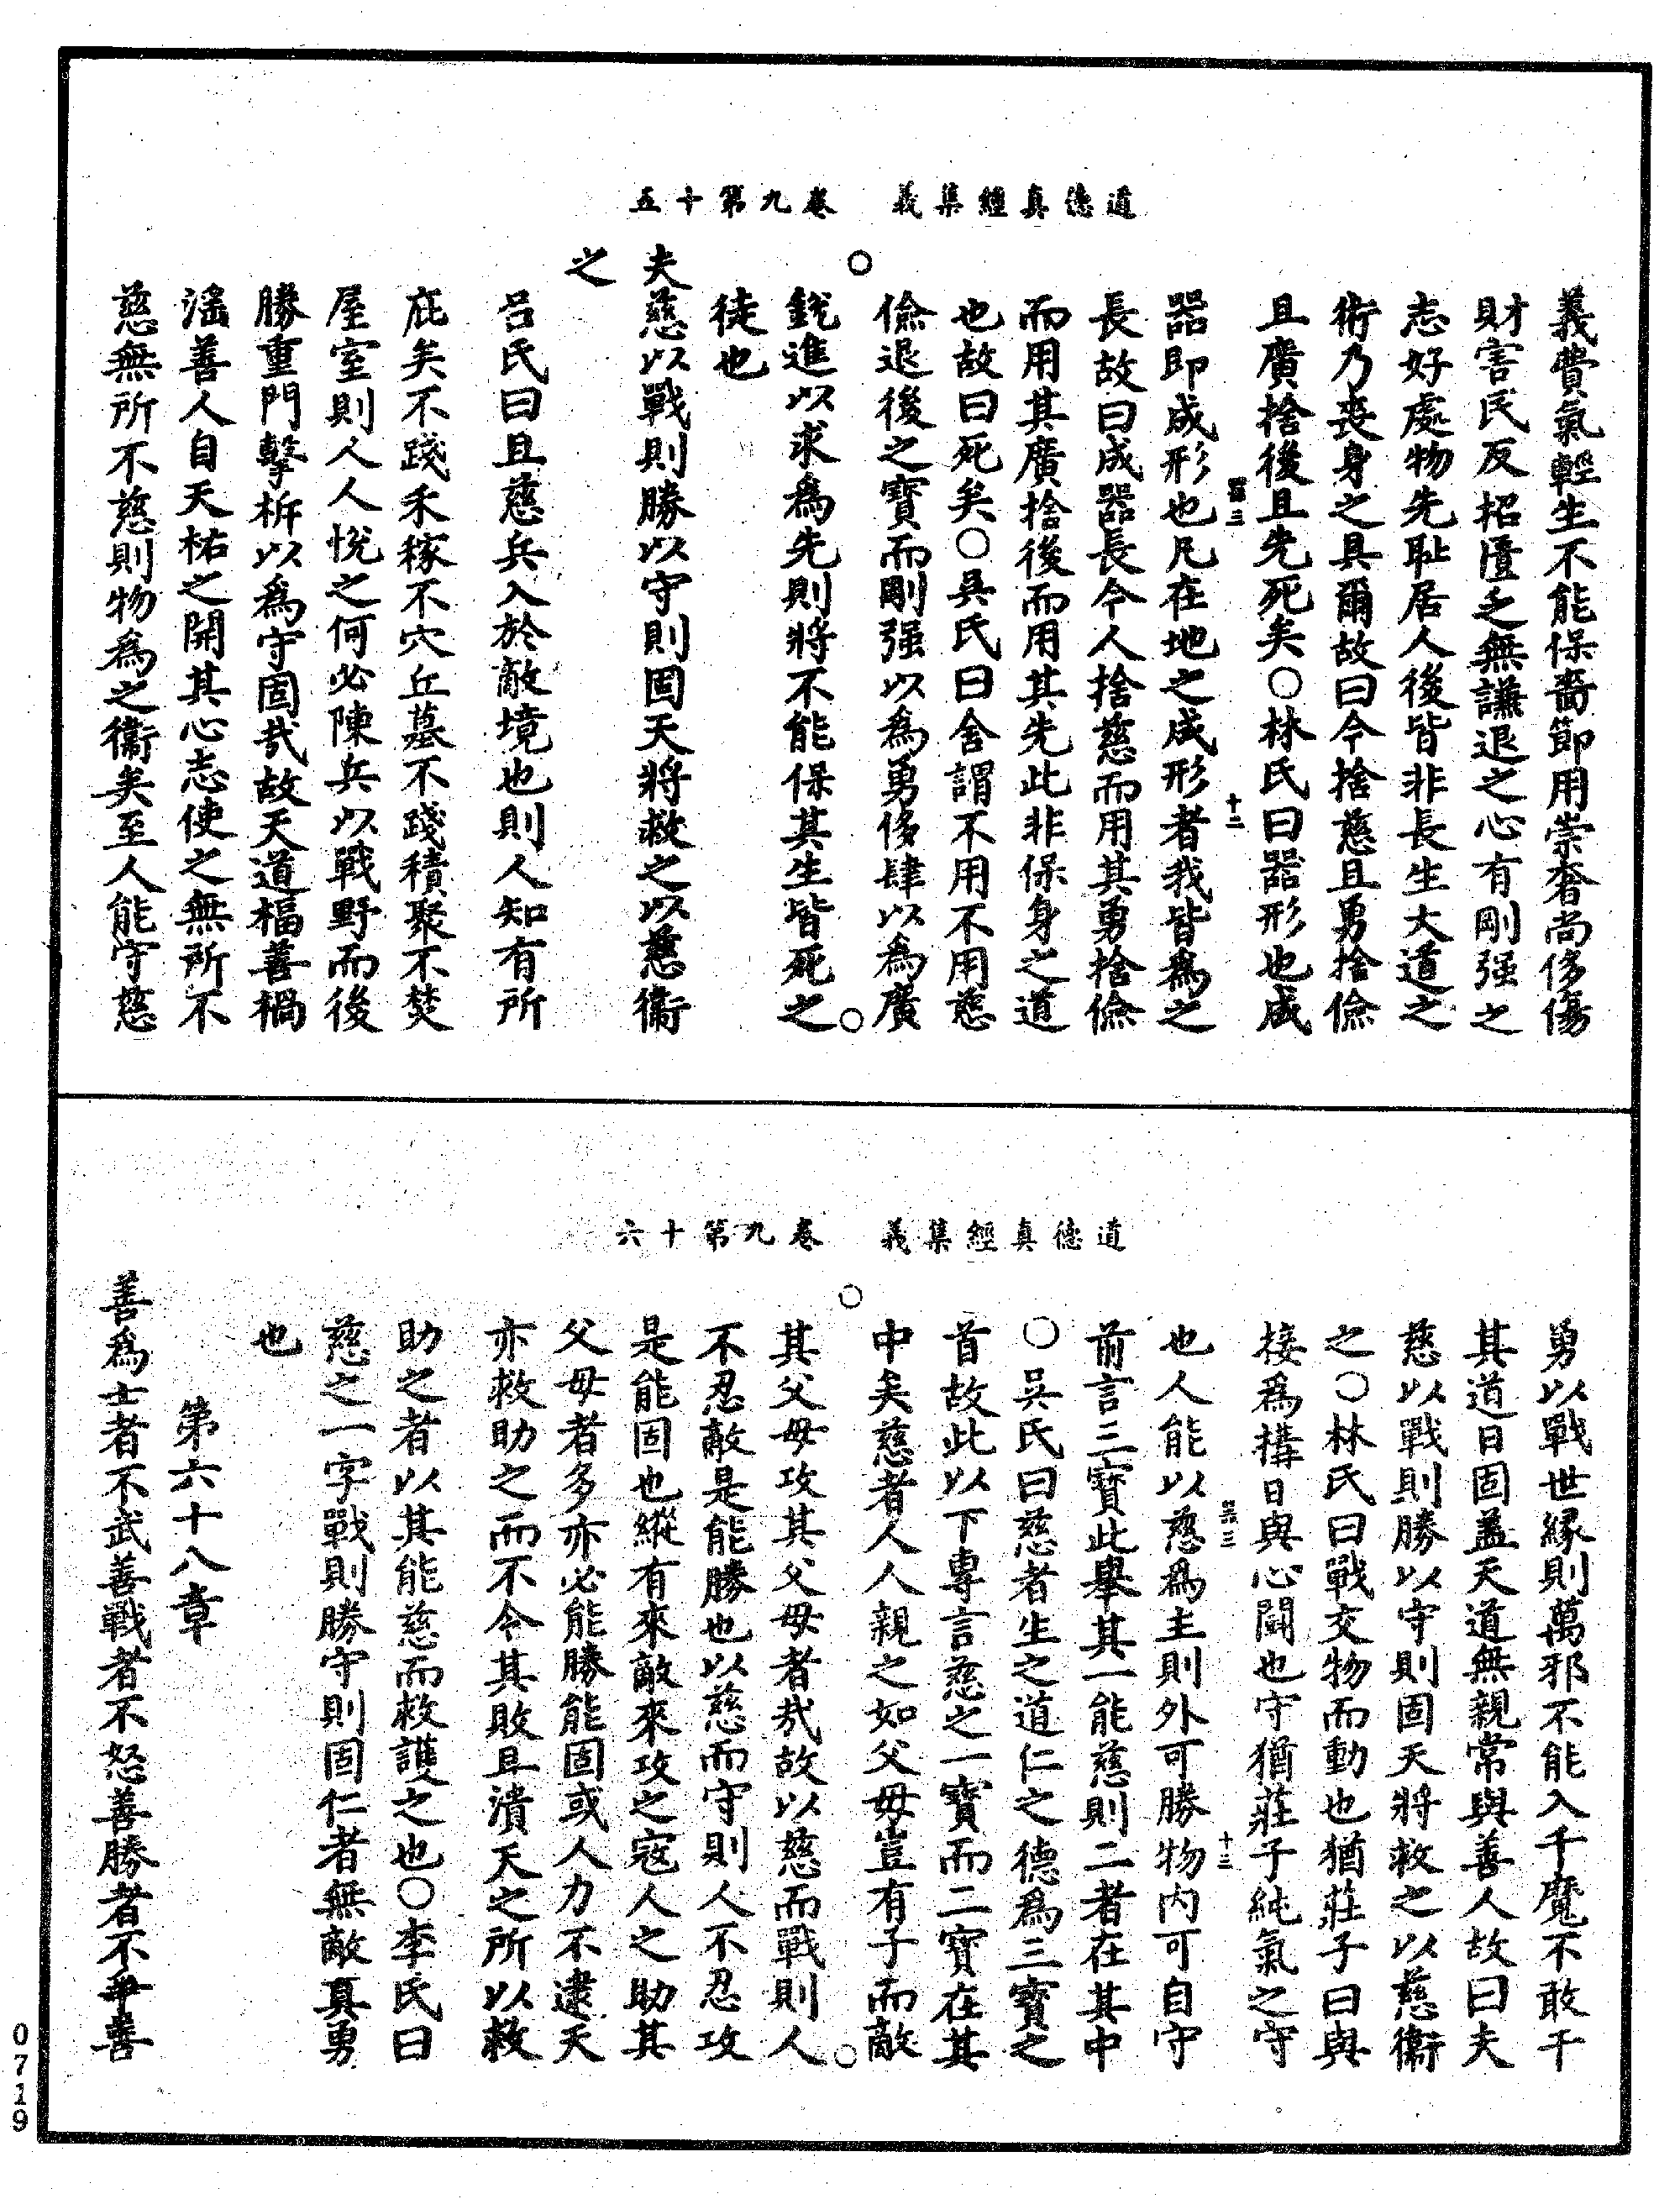 道德真經集義　卷九第十五
義費氣輕生不能保嗇節用崇奢尚侈傷
財害民反招匱乏無謙退之心有剛强之
志好處物先恥居人後皆非長生大道之
術乃喪身之具爾故曰今捨慈且勇捨儉
且廣捨後且先死矣○林氏曰器形也成
器三　十二
器即成形也凡在地之成形者我皆爲之
長故曰成器長今人捨慈而用其勇捨儉
而用其廣捨後而用其先此非保身之道
也故曰死矣○吳氏曰舍謂不用不用慈
儉退後之寶而剛强以爲勇侈肆以爲廣
銳進以求爲先則將不能保其生皆死之
徒也
夫慈以戰則勝以守則固天將救之以慈衞
之
吕氏曰且慈兵入於敵境也則人知有所
庇矣不踐禾稼不穴丘墓不踐積聚不焚
屋室則人人悅之何必陳兵以戰野而後
勝重門擊柝以爲守固哉故天道福善禍
滛善人自天祐之開其心志使之無所不
慈無所不慈則物爲之衞矣至人能守慈
道德真經集義　卷九第十六
勇以戰世緣則萬邪不能入千魔不敢干
其道日固蓋天道無親常與善人故曰夫
慈以戰則勝以守則固天將救之以慈衞
之○林氏曰戰交物而動也猶莊子曰與
接爲構日與心鬪也守猶莊子純氣之守
器三　十三
也人能以慈爲主則外可勝物内可自守
前言三寶此舉其一能慈則二者在其中
○吳氏曰慈者生之道仁之德爲三寶之
首故此以下專言慈之一寶而二寶在其
中矣慈者人人親之如父母豈有子而敵
其父母攻其父母者哉故以慈而戰則人
不忍敵是能勝也以慈而守則人不忍攻
是能固也縱有來敵來攻之寇人之助其
父母者多亦必能勝能固或人力不逮天
亦救助之而不令其敗且潰天之所以救
助之者以其能慈而救護之也○李氏曰
慈之一字戰則勝守則固仁者無敵真勇
也
第六十八章
善爲士者不武善戰者不怒善勝者不爭善
0719